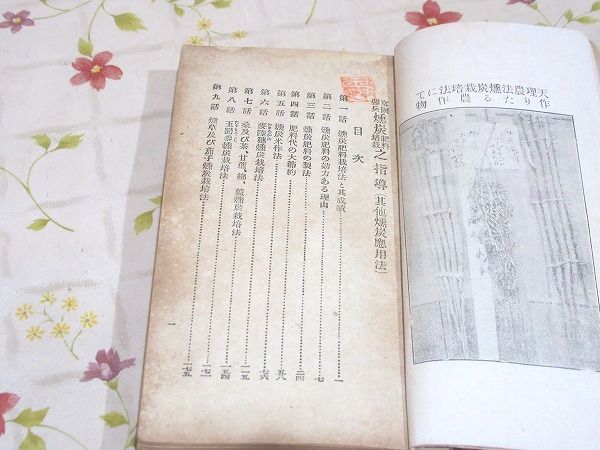 天理農法燻炭栽培法にて
作りたる農作物
富國農炭燻炭肥料栽培之指導(其他燻炭應用法)
目次
第一話 燻炭肥料栽培法と其成績 一
第二話 燻炭肥料の効力ある理由 七
第三話 燻炭肥料の製法 二四
第四話 肥料代の大節約 五八
第五話 燻炭米作法 七六
第六話 麥陸穗燻炭栽培法 一二五
第七話 桑及び茶、甘蔗、綿、藍燻炭栽培法 一五四
第八話 玉蜀黍燻炭栽培法 一七一
第九話 煙草及び茄子燻炭栽培法 一七五
一